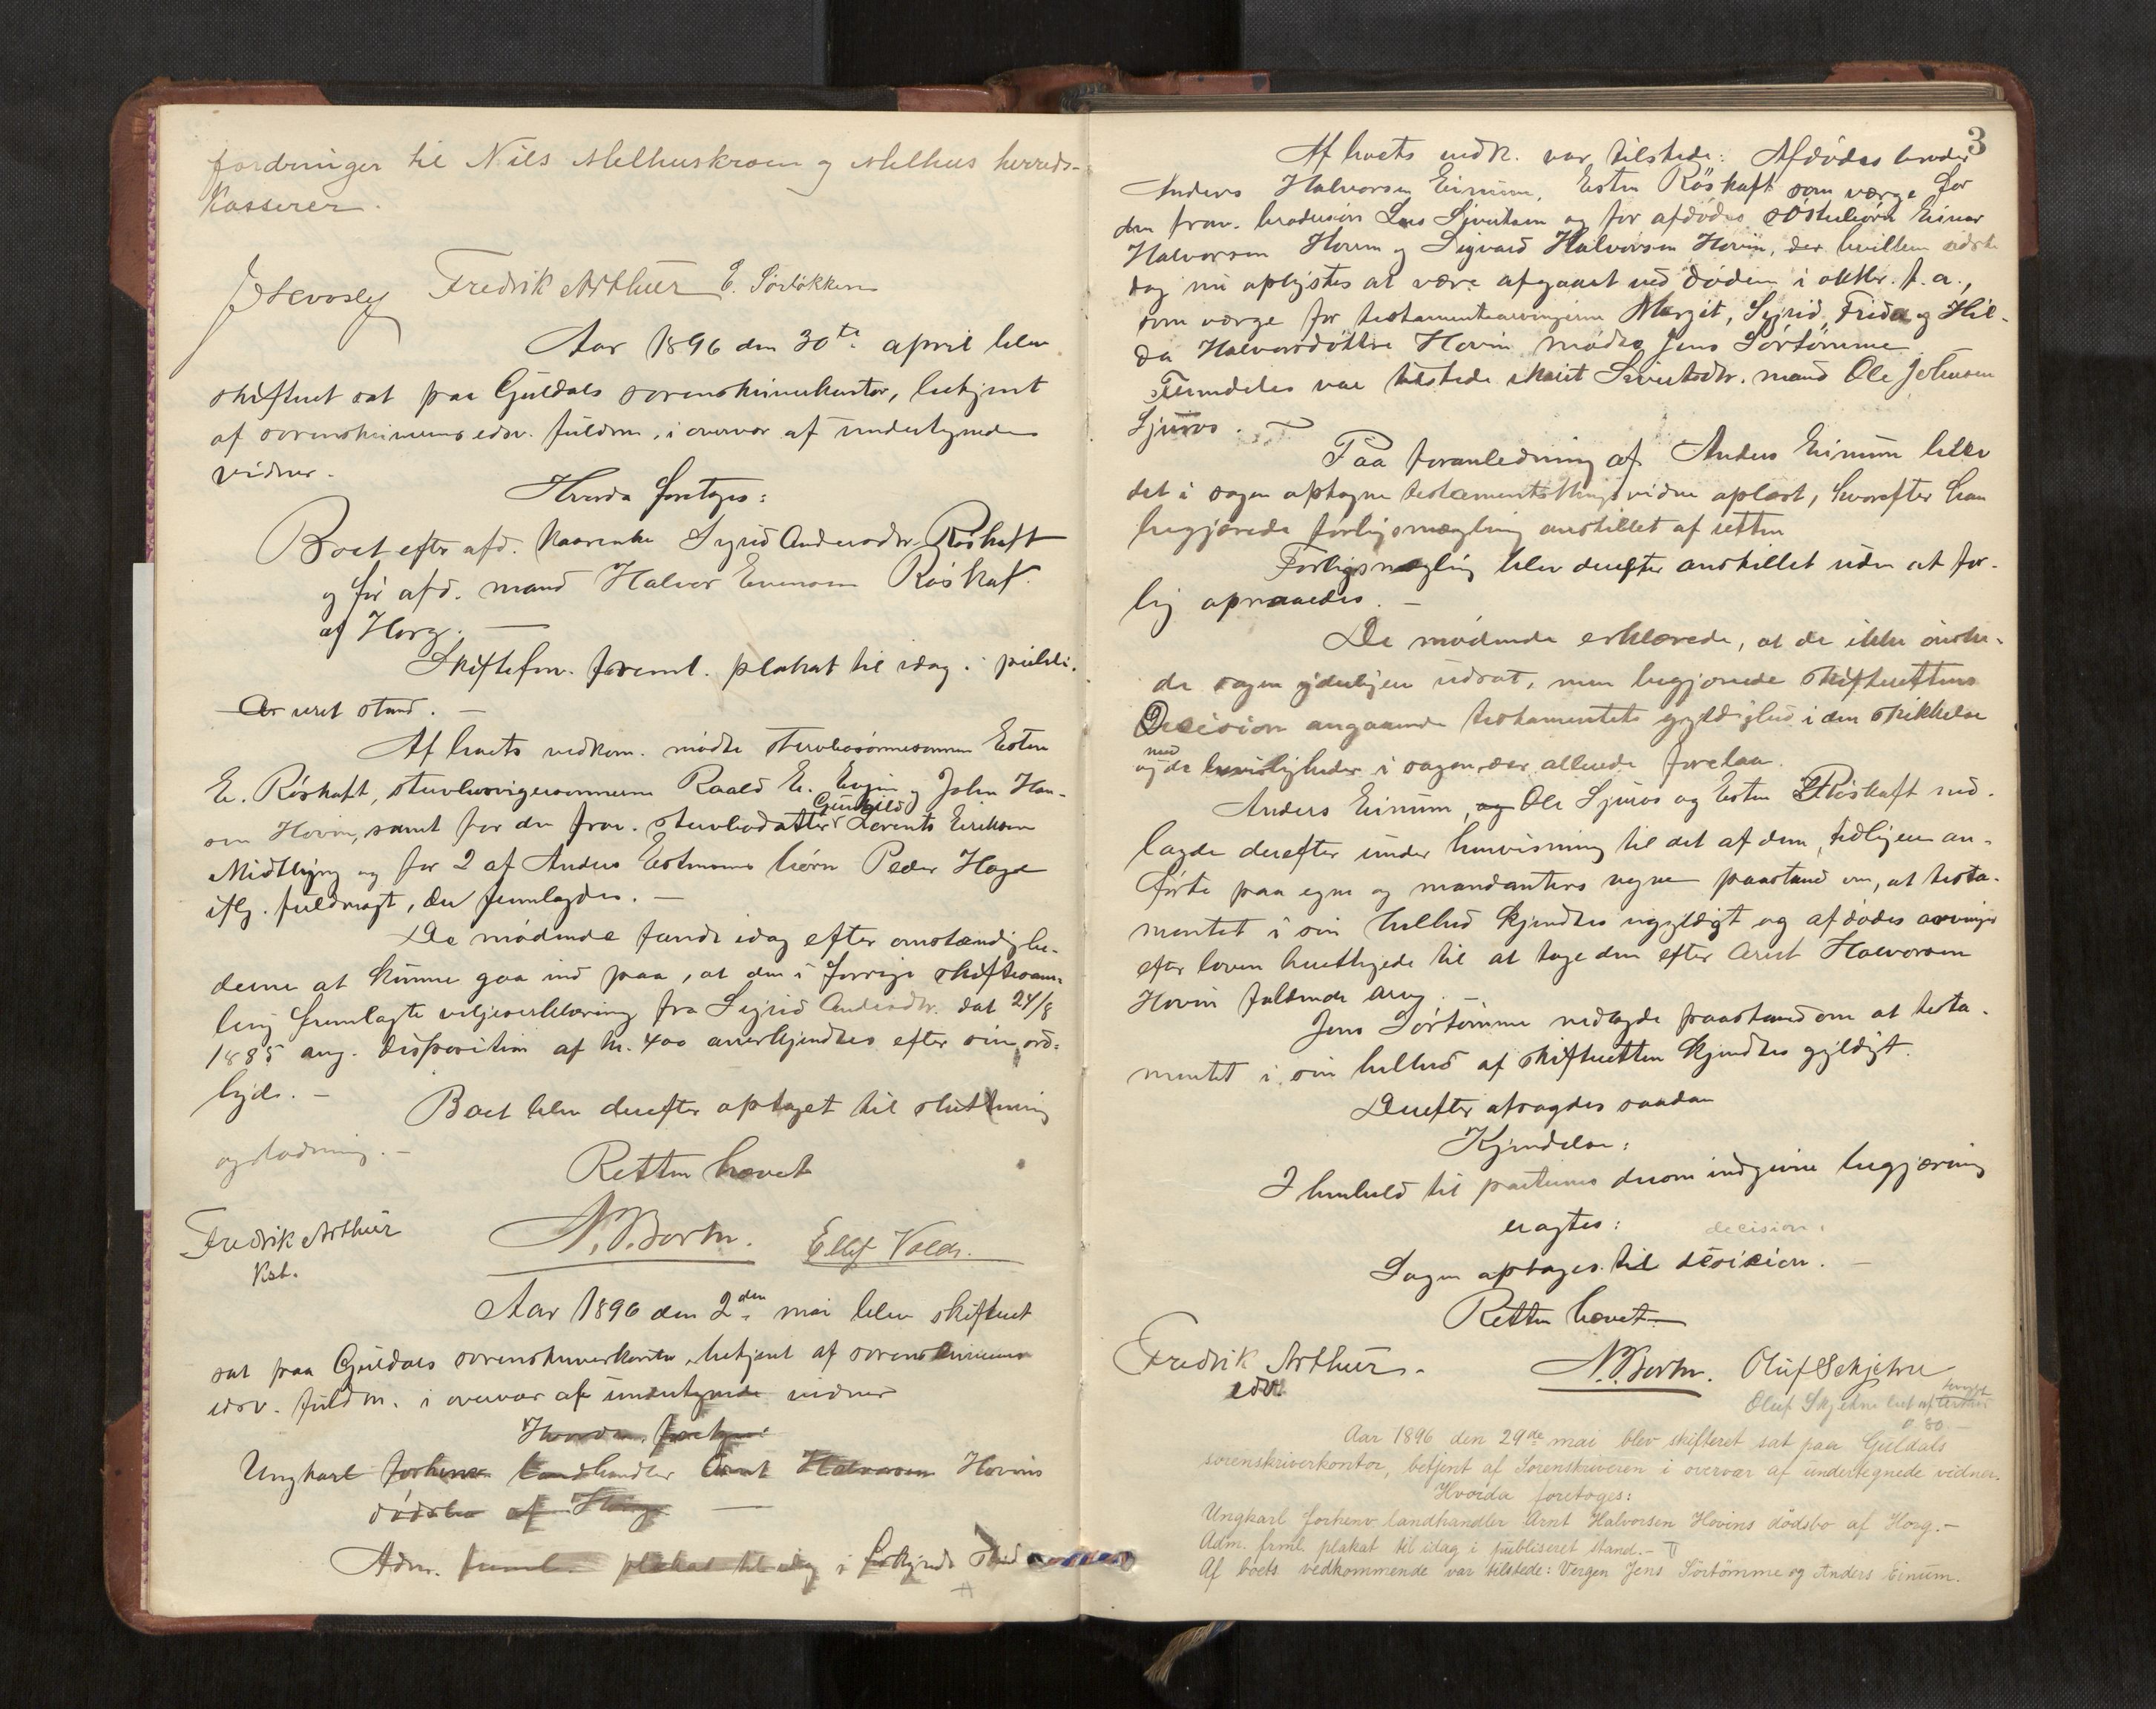 fordringer til Nils Melhuskroen og Melhus herreds-
kasserer.
Fredrik Arthur E. Sörlökken
Aar 1896 den 30te april blev
skifteret sat paa Guldals sorenskriverkontor, betjent
af sorenskriverens edsv. fuldm. i overvær af undertegnede
vidner.
Hvorda foretoges:
Boet efter afd. kaarenke Sigrid Andersdtr. Röskaft
og för afd. mand Halvor Evensen Röskaf.
af Horg. —
Skiftefor. freml. plakat til idag i publi-
ceret stand. —
Af boets vedkom. mödte stervbosönnesönnen Esten
E. Röskaft, stervbosvigersönnerne Roald E. og John Han-
sen Hovin, samt for den frav. stervbodatter Gunhild Lorents Eriksen
Midtlyng og for 2 af Anders Estensens börn Peder Hage
iflg. fuldmagt, der fremlagdes. —
De mödende fandt idag efter omstændighe-
derne at kunne gaa ind paa, at den i forrige skiftesam-
ling fremlagte viljeserklæring fra Sigrid Andersdtr. dat 24/8
1885 ang. disposition af kr. 400 anerkjendtes efter sin ord-
lyd. —
Boet blev derefter optaget til slutning
og lodning. —
Retten hævet
Fredrik Arthur
Kst.
N. P. Bortn. Ellef Volds.
Aar 1896 den 2den mai blev skifteret
sat paa Guldals sorenskriverkontor, betjent af sorenskriverens
edsv. fuldm. i overvær af undertegnede vidner
Hvorda foretoges:
Ungkarl forhenv. landhandler Arnt Halvorsen Hovins
dödsbo af Horg —
Adm. freml. plakat til idag i forkyndt stand
3
Af boets vedk. var tilstede: Afdödes broder
Anders Halvorsen Einum, Esten Röskaft som værge for
den frav. brodersön Lars Sjursen og for afdödes söskenbörn Einar
Halvorsen Hovin og Sigvard Halvorsen Hovin, der hvilken sidste
dog nu oplystes at være afgaaet ved döden i oktbr. f. a.,
som værge for testamentsarvingerne Margit, Sigrid, Frida og Hil-
da Halvorsdöttre Hovin mödte Jens Sörtömme
Fremdeles var tilstede Marit Sivertsdtr. mand Ole Johnsen
Sjuros. —
Paa foranledning af Anders Einum blev
det i sagen optagne testamentsthingsvidne oplæst, hvorefter han
begjærede forligsmægling anstillet af retten
Forligsmægling blev derefter anstillet uden at for-
lig opnaaedes. —
De mödende erklærede, at de ikke önske-
de sagen yderligere udsat, men begjærede skifterettens
Decision angaaende testamentets gyldighed i den skikkelse
og med de bevisligheder i sagen, der allerede forelaa.
Anders Einum, og Ole Sjuros og Esten Röskaft ned-
lagde derefter under henvisning til det af dem tidligere an-
förte paa egne og mandanters vegne paastand om, at testa-
mentet i sin helhed kjendtes ugyldigt og afdödes arvinger
efter loven berettigede til at tage den efter Arnt Halvorsen
Hovin faldende arv. —
Jens Sörtömme nedlagde paastand om at testa-
mentet i sin helhed af skifteretten kjendtes gyldigt.
Derefter afsagdes saadan
Kjendelse:
I henhold til parternes derom indgivne begjæring
eragtes: decision.
Sagen optages til decision. —
Retten hævet
Fredrik Arthur.
edsv.
N. P. Bortn. Oluf Skjetne
Aar 1896 den 29de mai blev skifteret sat paa Guldals
sorenskriverkontor, betjent af Sorenskriveren i overvær af undertegnede vidner.
Hvorda foretoges:
Ungkarl forhenv. landhandler Arnt Halvorsen Hovins dödsbo af Horg. —
Adm. freml. plakat til idag i publiseret stand. —
Af boets vedkommende var tilstede: Vergen Jens Sörtömme og Anders Einum.